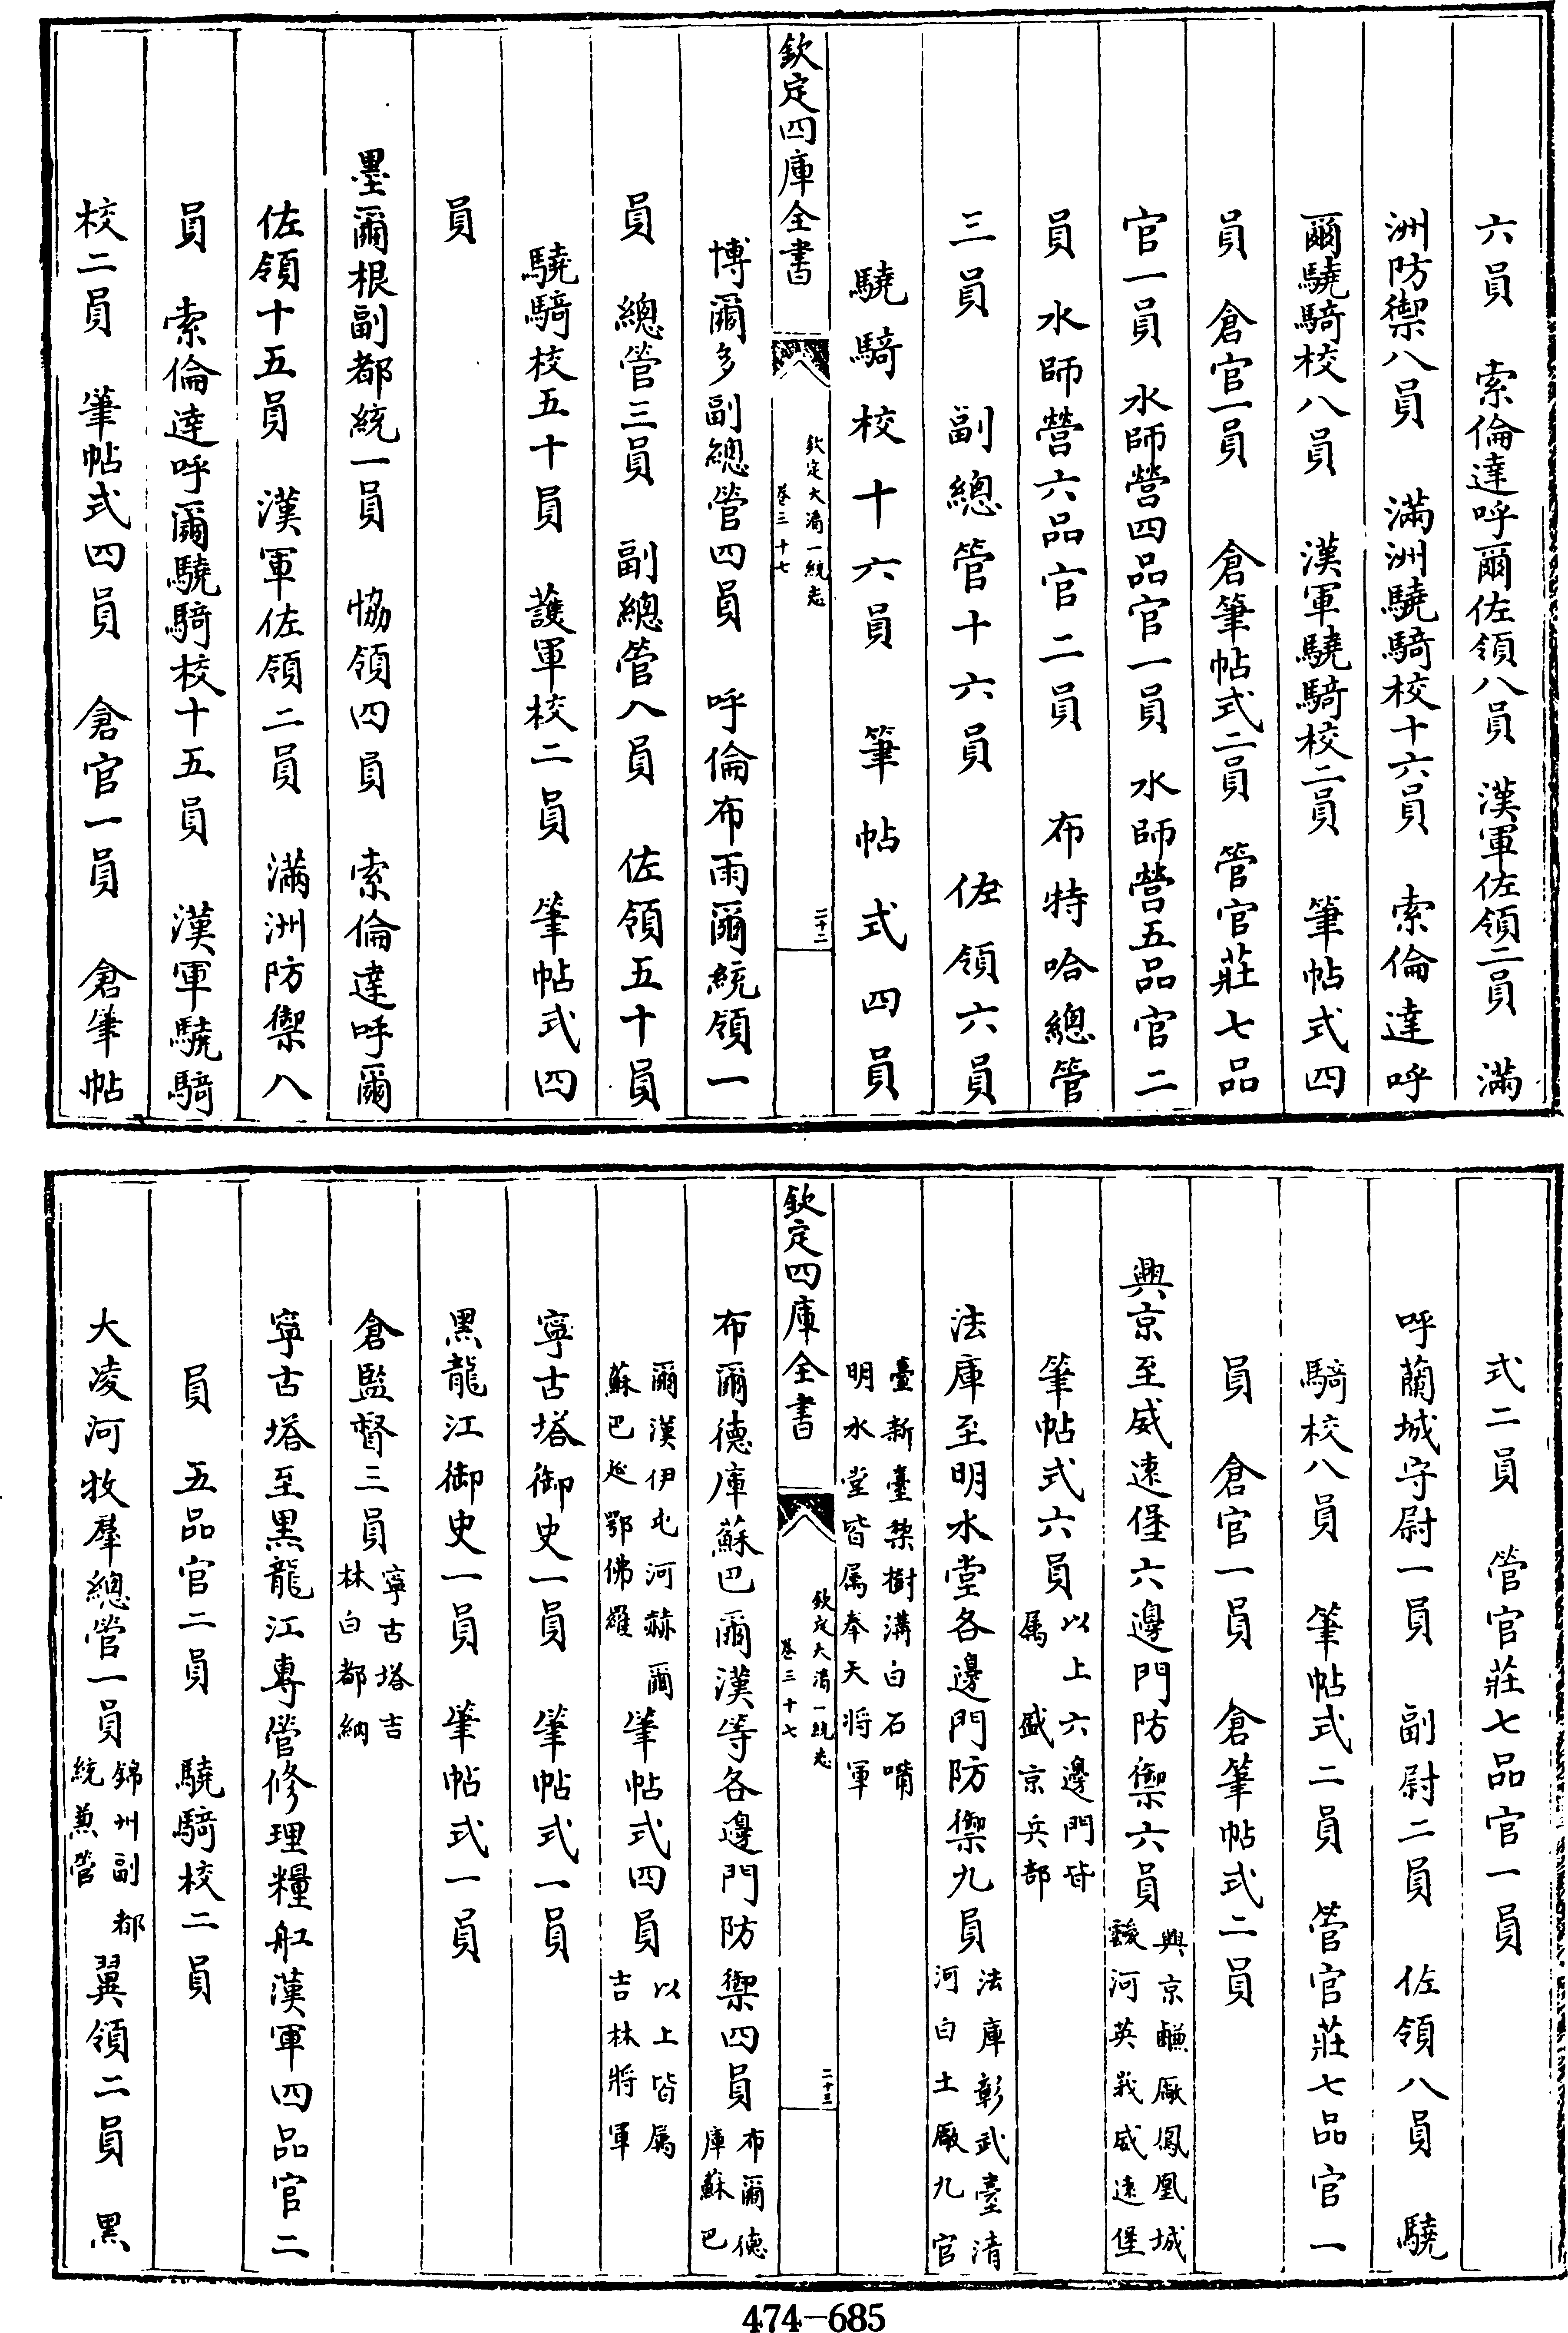 六員　索倫達呼爾佐領八員　漢軍佐領二員　滿
洲防禦八員　滿洲驍騎校十六員　索倫達呼
爾驍騎校八員　漢軍驍騎校二員　筆帖式四
員　倉官一員　倉筆帖式二員　管官莊七品
官一員　水師營四品官一員　水師營五品官二
員　水師營六品官二員　布特哈總管
三員　副總管十六員　佐領六員
驍騎校十六員　筆帖式四員
欽定四庫全書
欽定大清一統志
卷三十七
二十二
博爾多副總管四員　呼倫布雨爾統領一
員　總管三員　副總管八員　佐領五十員
驍騎校五十員　護軍校二員　筆帖式四
員
墨爾根副都統一員　協領四員　索倫達呼爾
佐領十五員　漢軍佐領二員　滿洲防禦八
員　索倫達呼爾驍騎校十五員　漢軍驍騎
校二員　筆帖式四員　倉官一員　倉筆帖
式二員　管官莊七品官一員
呼蘭城守尉一員　副尉二員　佐領八員　驍
騎校八員　筆帖式二員　管官莊七品官一
員　倉官一員　倉筆帖式二員
興京至威遠堡六邊門防禦六員興京鹻厰鳳凰城
靉河英莪威遠堡
筆帖式六員以上六邊門皆
属　盛京兵部
法庫至明水堂各邊門防禦九員法庫彰武臺清
河白土厰九官
臺新臺梨樹溝白石嘴
明水堂皆属奉天將軍
欽定四庫全書
欽定大清一統志
卷三十七
二十三
布爾德庫蘇巴爾漢等各邊門防禦四員布爾德
庫蘇巴
爾漢伊屯河赫爾
蘇巴彦鄂佛羅
筆帖式四員以上皆属
吉林將軍
寧古塔御史一員　筆帖式一員
黑龍江御史一員　筆帖式一員
倉監督三員寧古塔吉
林白都納
寧古塔至黑龍江專管修理糧舡漢軍四品官二
員　五品官二員　驍騎校二員
大凌河牧羣總管一員錦州副都
統兼管
翼領二員　黑
474-685